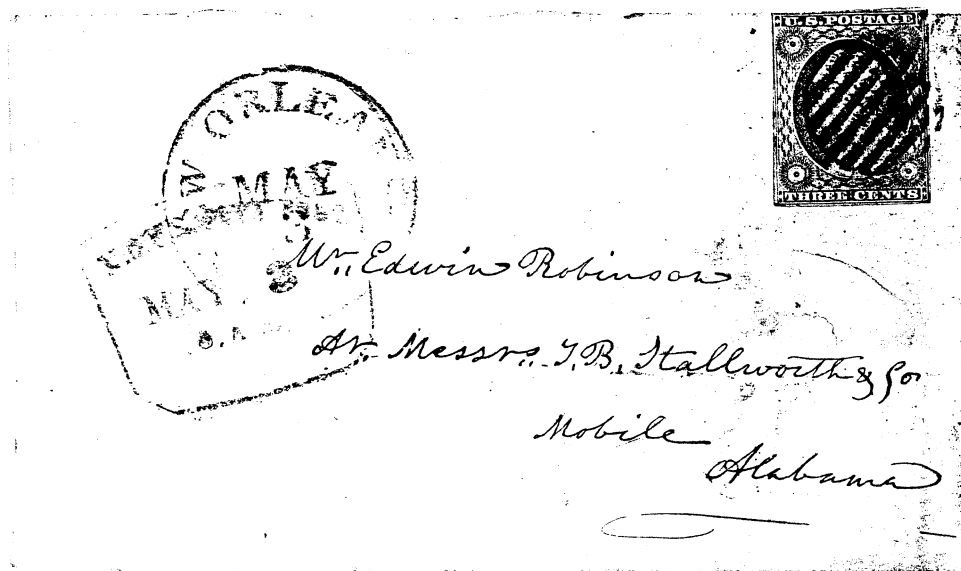 U.S. POSTAGE
THREE CENTS
EW ORLEA
MAY
MAY 3
Mr. Edwin Robinson
At Messrs. T.B. Stallworth & Co
Mobile
Alabama